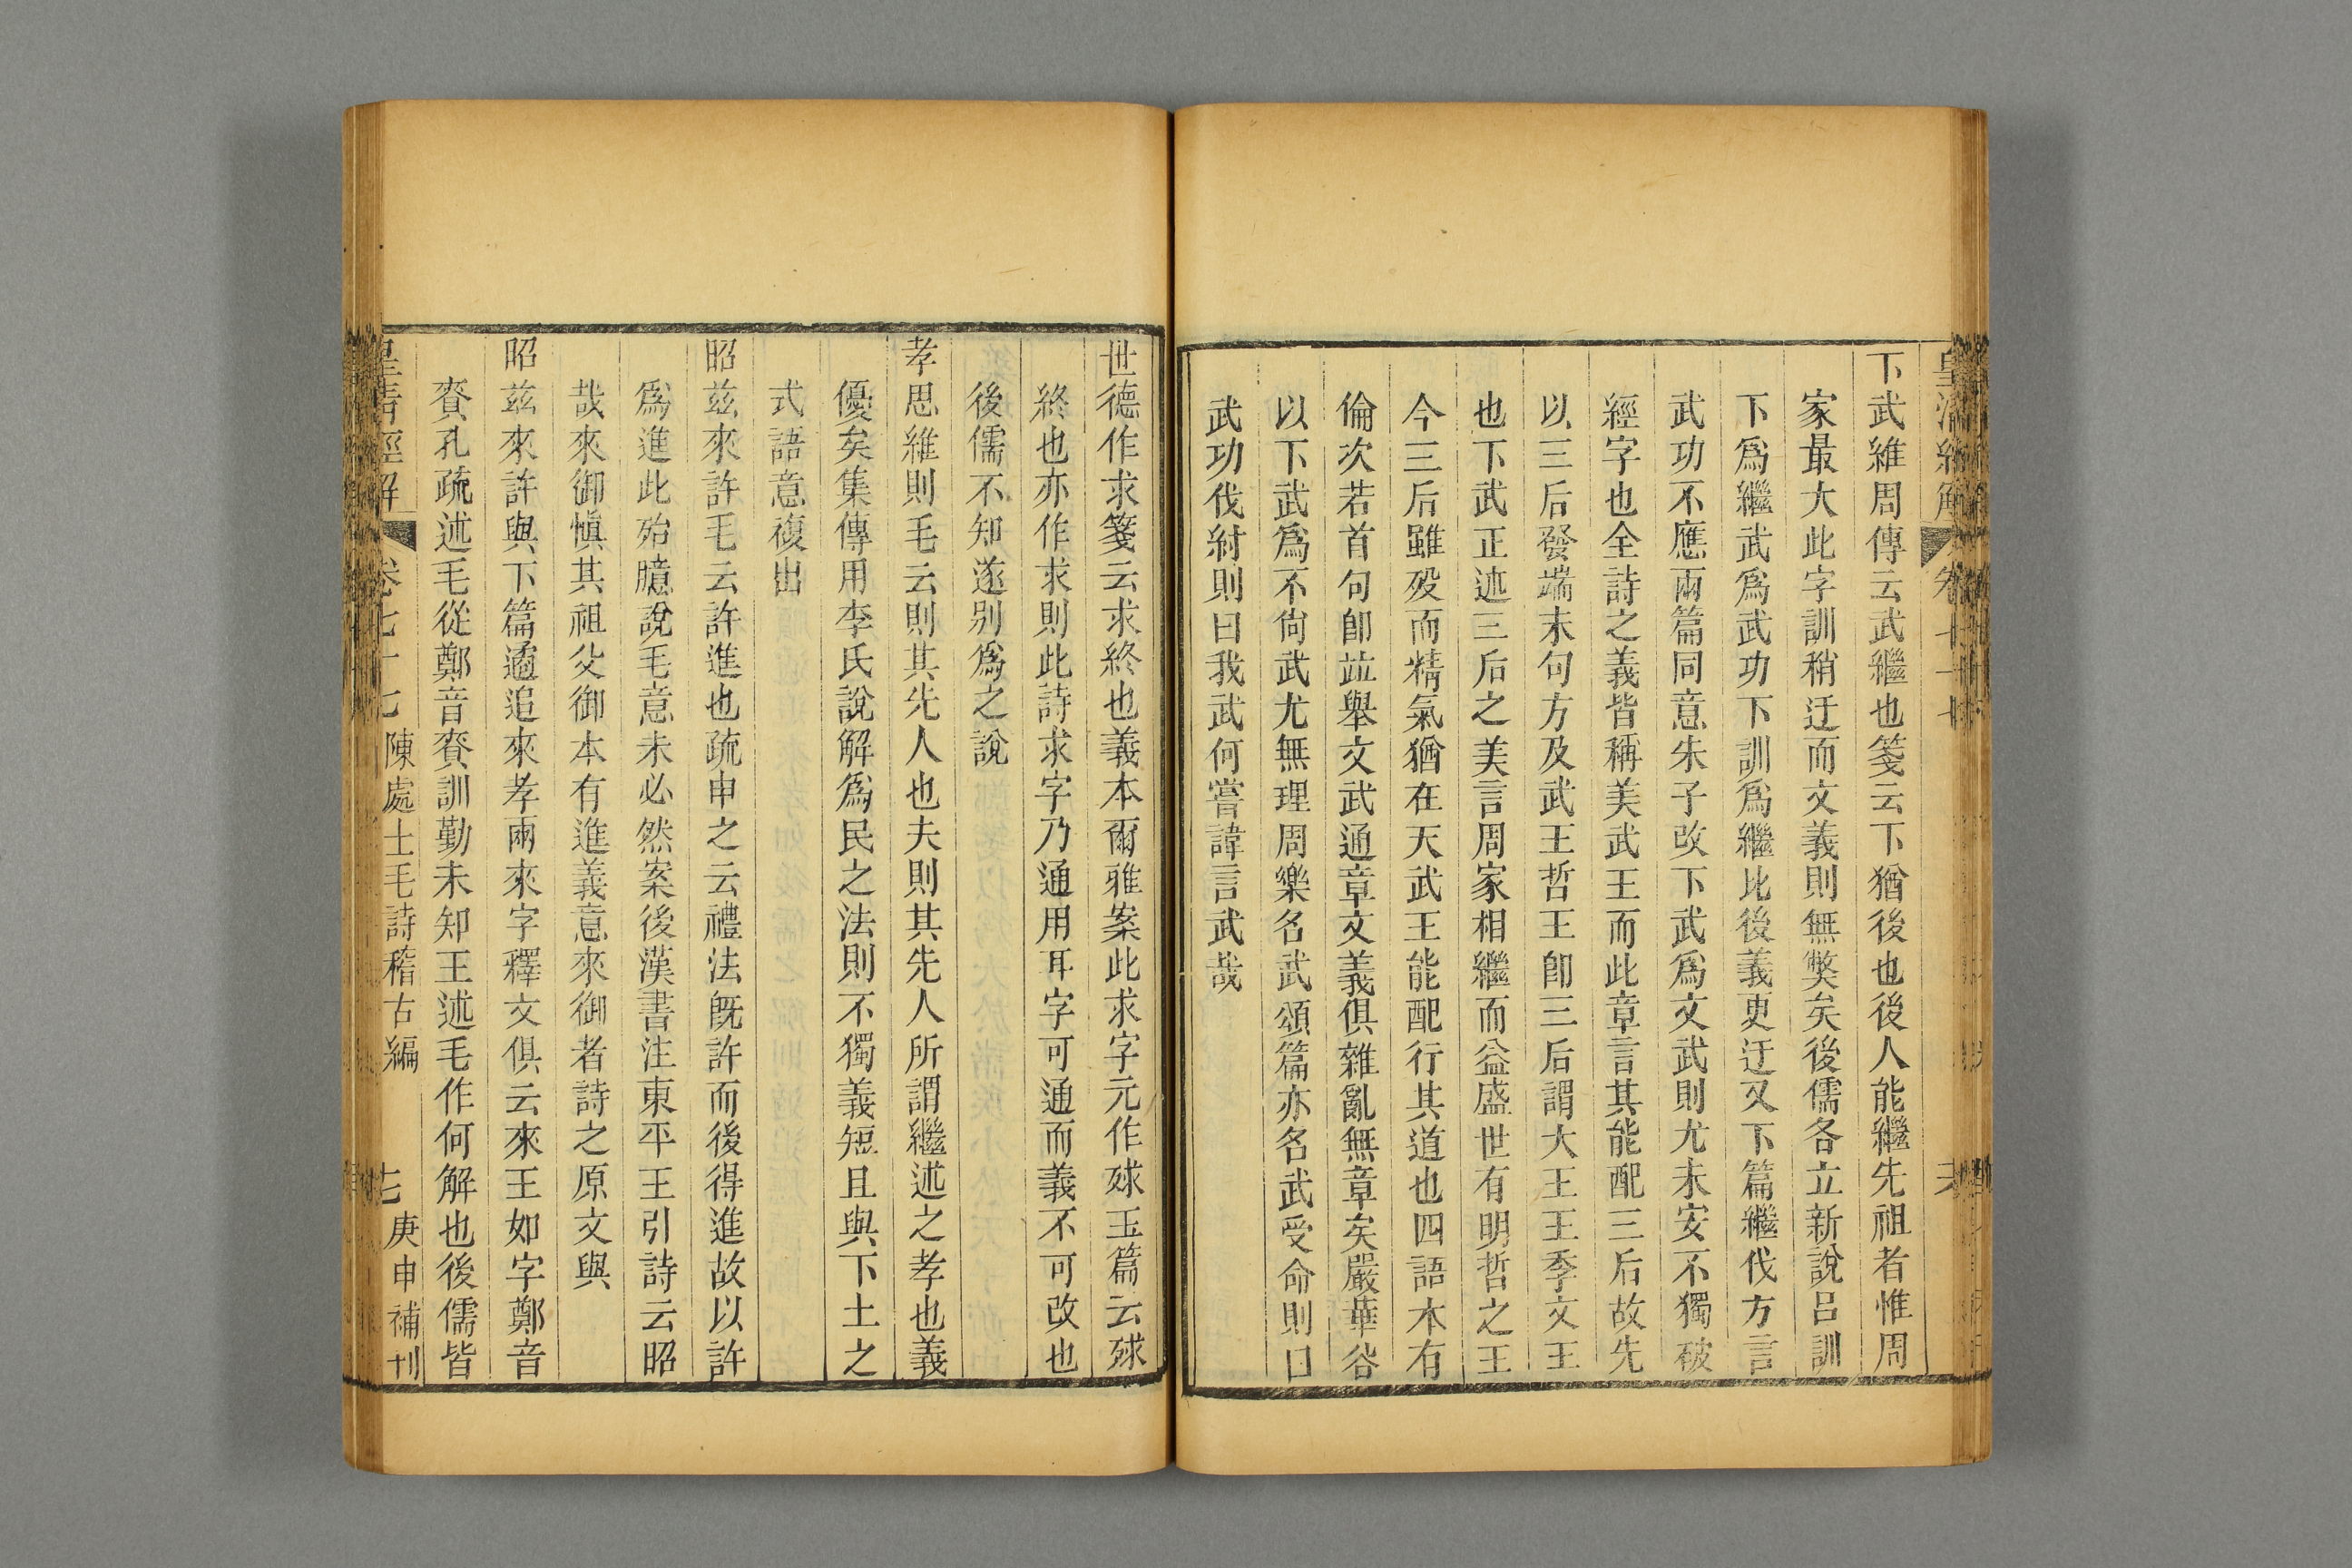 下武維周傳云武繼也箋云下猶後也後人能繼先祖者惟周
家最大此字訓稍迂而文義則無獘矣後儒各立新說呂訓
下爲繼武爲武功下訓爲繼比後義更迂又下篇繼伐方言
武功不應兩篇同意朱子改下武爲文武則尤未安不獨破
經字也全詩之義皆稱美武王而此章言其能配三后故先
以三后發端末句方及武王哲王卽三后謂大王王季文王
也下武正述三后之美言周家相繼而益盛世有明哲之王
今三后雖歿而精氣猶在天武王能配行其道也四語本有
倫次若首句卽竝舉文武通章文義俱雜亂無章矣嚴華谷
以下武爲不尙武尤無理周樂名武頌篇亦名武受命則曰
武功伐紂則曰我武何嘗諱言武哉
世德作求箋云求終也義本爾雅案此求字元作殏玉篇云殏
終也亦作求則此詩求字乃通用耳字可通而義不可改也
後儒不知遂别爲之說
孝思維則毛云則其先人也夫則其先人所謂繼述之孝也義
優矣集傳用李氏說解爲民之法則不獨義短且與下土之
式語意複出
昭兹來許毛云許進也疏申之云禮法旣許而後得進故以許
爲進此殆臆說毛意未必然案後漢書注東平王引詩云昭
哉來御愼其祖父御本有進義意來御者詩之原文與
昭兹來許與下篇遹追來孝兩來字釋文俱云來王如字鄭音
賚孔疏述毛從鄭音賚訓勤未知王述毛作何解也後儒皆
皇清經解 卷七十七 陳處士毛詩稽古編 七 庚申補刊